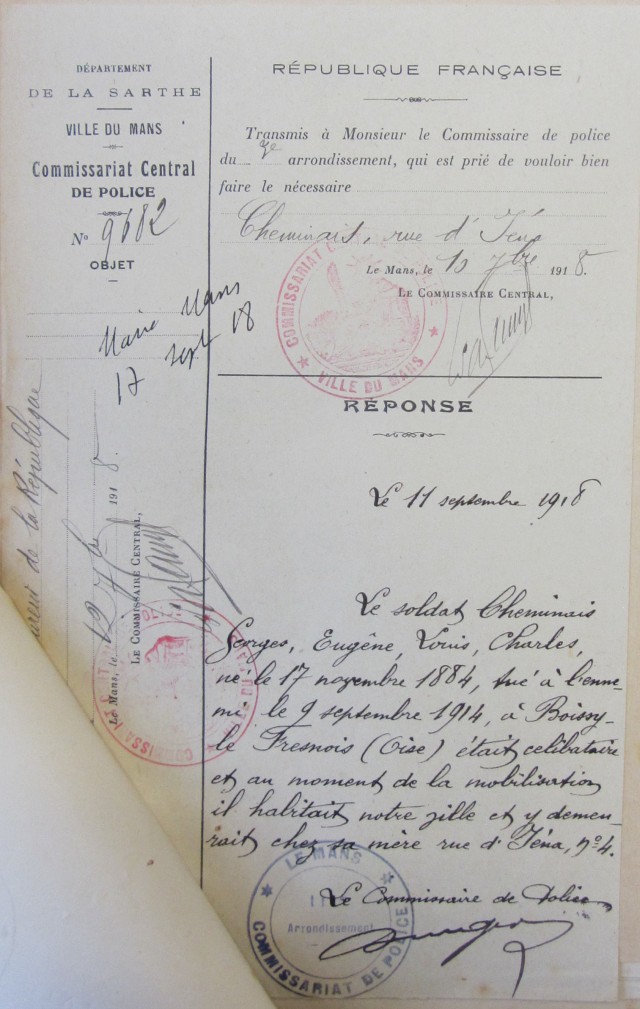 DÉPARTEMENT
DE LA SARTHE
VILLE DU MANS
Commissariat Central
DE POLICE
N° 9682
OBJET
Mairie Mans
17 sept 18
RÉPUBLIQUE FRANÇAISE
Transmis à Monsieur le Commissaire de police
du 3e arrondissement, qui est prié de vouloir bien
faire le nécessaire
Cheminais, rue d'Iéna
Le Mans, le 10 7bre 1918.
LE COMMISSAIRE CENTRAL,
COMMISSARIAT
VILLE DU MANS
RÉPONSE
Le 11 septembre 1918
Le soldat Cheminais
Georges, Eugène, Louis, Charles,
né le 17 novembre 1884, tué à l'enne-
mi le 9 septembre 1914, à Boissy-
le Fresnois (Oise) était celibataire
et au moment de la mobilisation
il habitait notre ville et y demeu-
rait chez sa mère rue d'Iéna, n° 4.
Le Commissaire de Police
LE MANS
Arrondissement
COMMISSARIAT DE POLICE
de la République
Le Mans, le 12 7bre 1918.
LE COMMISSAIRE CENTRAL,